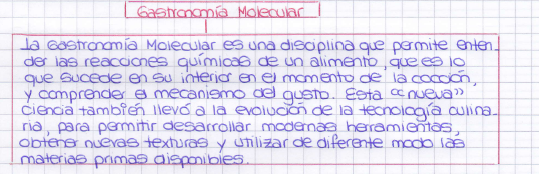 Gastronomía Molecular
La Gastronomía Molecular es una disciplina que permite enten-
der las reacciones químicas de un alimento, que es lo
que sucede en su interior en el momento de la cocción,
y comprender el mecanismo del gusto. Esta «nueva»
ciencia también llevó a la evolución de la tecnología culina-
ria, para permitir desarrollar modernas herramientas,
obtener nuevas texturas y utilizar de diferente modo las
materias primas disponibles.